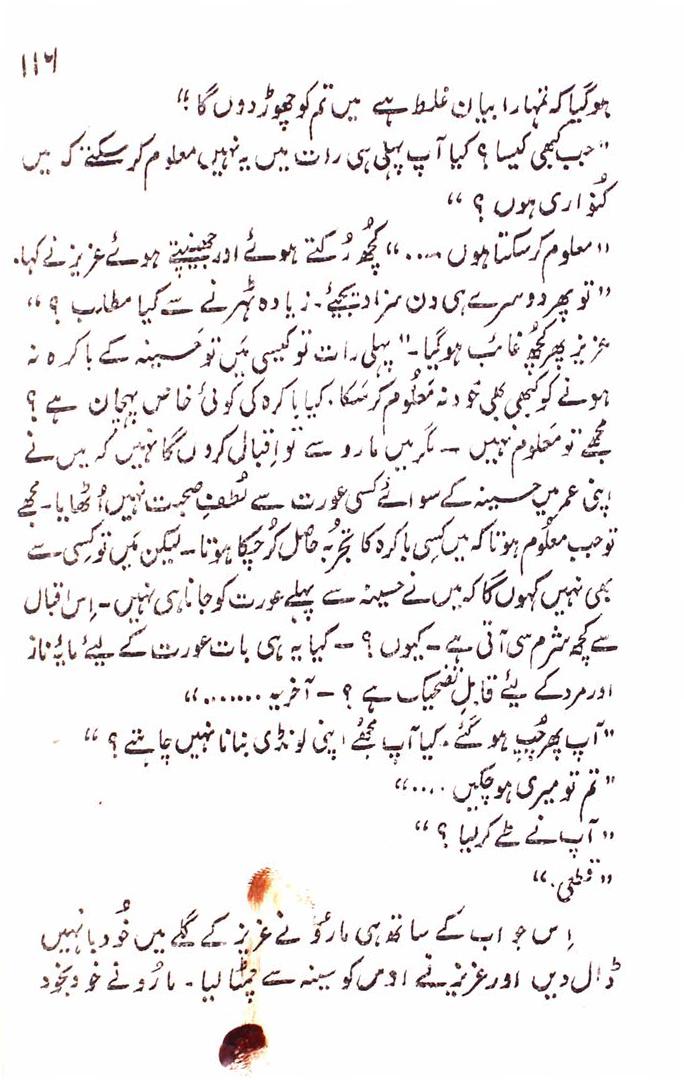 ۱۱۶
ہوگیا کہ تمہارا بیان غلط ہے میں تم کو چھوڑ دوں گا ؟"
"جب کبھی کیسا ؟ کیا آپ پہلی ہی رات میں یہ نہیں معلوم کر سکتے کہ میں
کنواری ہوں ؟"
"معلوم کر سکتا ہوں ...." کچھ رُکتے ہوئے اور جھینپتے ہوئے عزیز نے کہا.
"تو پھر دوسرے ہی دن سزا دیجئے۔ زیادہ ٹہرنے سے کیا مطلب ؟"
عزیز پھر کچھ غائب ہوگیا۔" پہلی رات تو کیسی مَیں تو حَسینہ کے باکرہ نہ
ہونے کو کبھی بھی خود نہ مَعلُوم کر سَکا. کیا باکرہ کی کوئی خاص پہچان ہے ؟
مجھے تو مَعلوم نہیں ۔ مگر میں مارو سے تو اِقبال کروں گا نہیں کہ میں نے
اپنی عمر میں حسینہ کے سوائے کسی عورت سے لُطفِ صحبت نہیں اُٹھایا۔ مجھے
تو جب معلُوم ہوتا کہ میں کِسی باکرہ کا تجربُہ حاصل کر چُکا ہوتا۔ لیکن مَیں تو کِسی سے
بھی نہیں کہوں گا کہ میں نے حسینہ سے پہلے عورت کو جانا ہی نہیں۔ اِس اقبال
سے کچھ شرم سی آتی ہے۔ کیوں ؟ ۔ کیا یہ ہی بات عورت کے لیئے مایۂ ناز
اور مرد کے لیئے قابلِ تضحیک ہے ؟ ۔ آخر یہ ......."
"آپ پھر چُپ ہو گئے. کیا آپ مجھے اپنی لونڈی بنانا نہیں چاہتے ؟"
"تم تو میری ہو چکیں ...."
"آپ نے طے کر لیا ؟"
"قطعی."
اِس جواب کے ساتھ ہی مارُو نے عزیز کے گلے میں خُود باہیں
ڈال دیں اور عزیز نے اوس کو سینہ سے چمٹا لیا۔ مارُو نے خود بخود